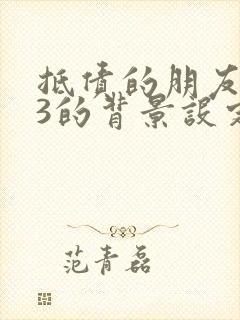 抵债的朋友
3的背景设定
范青磊